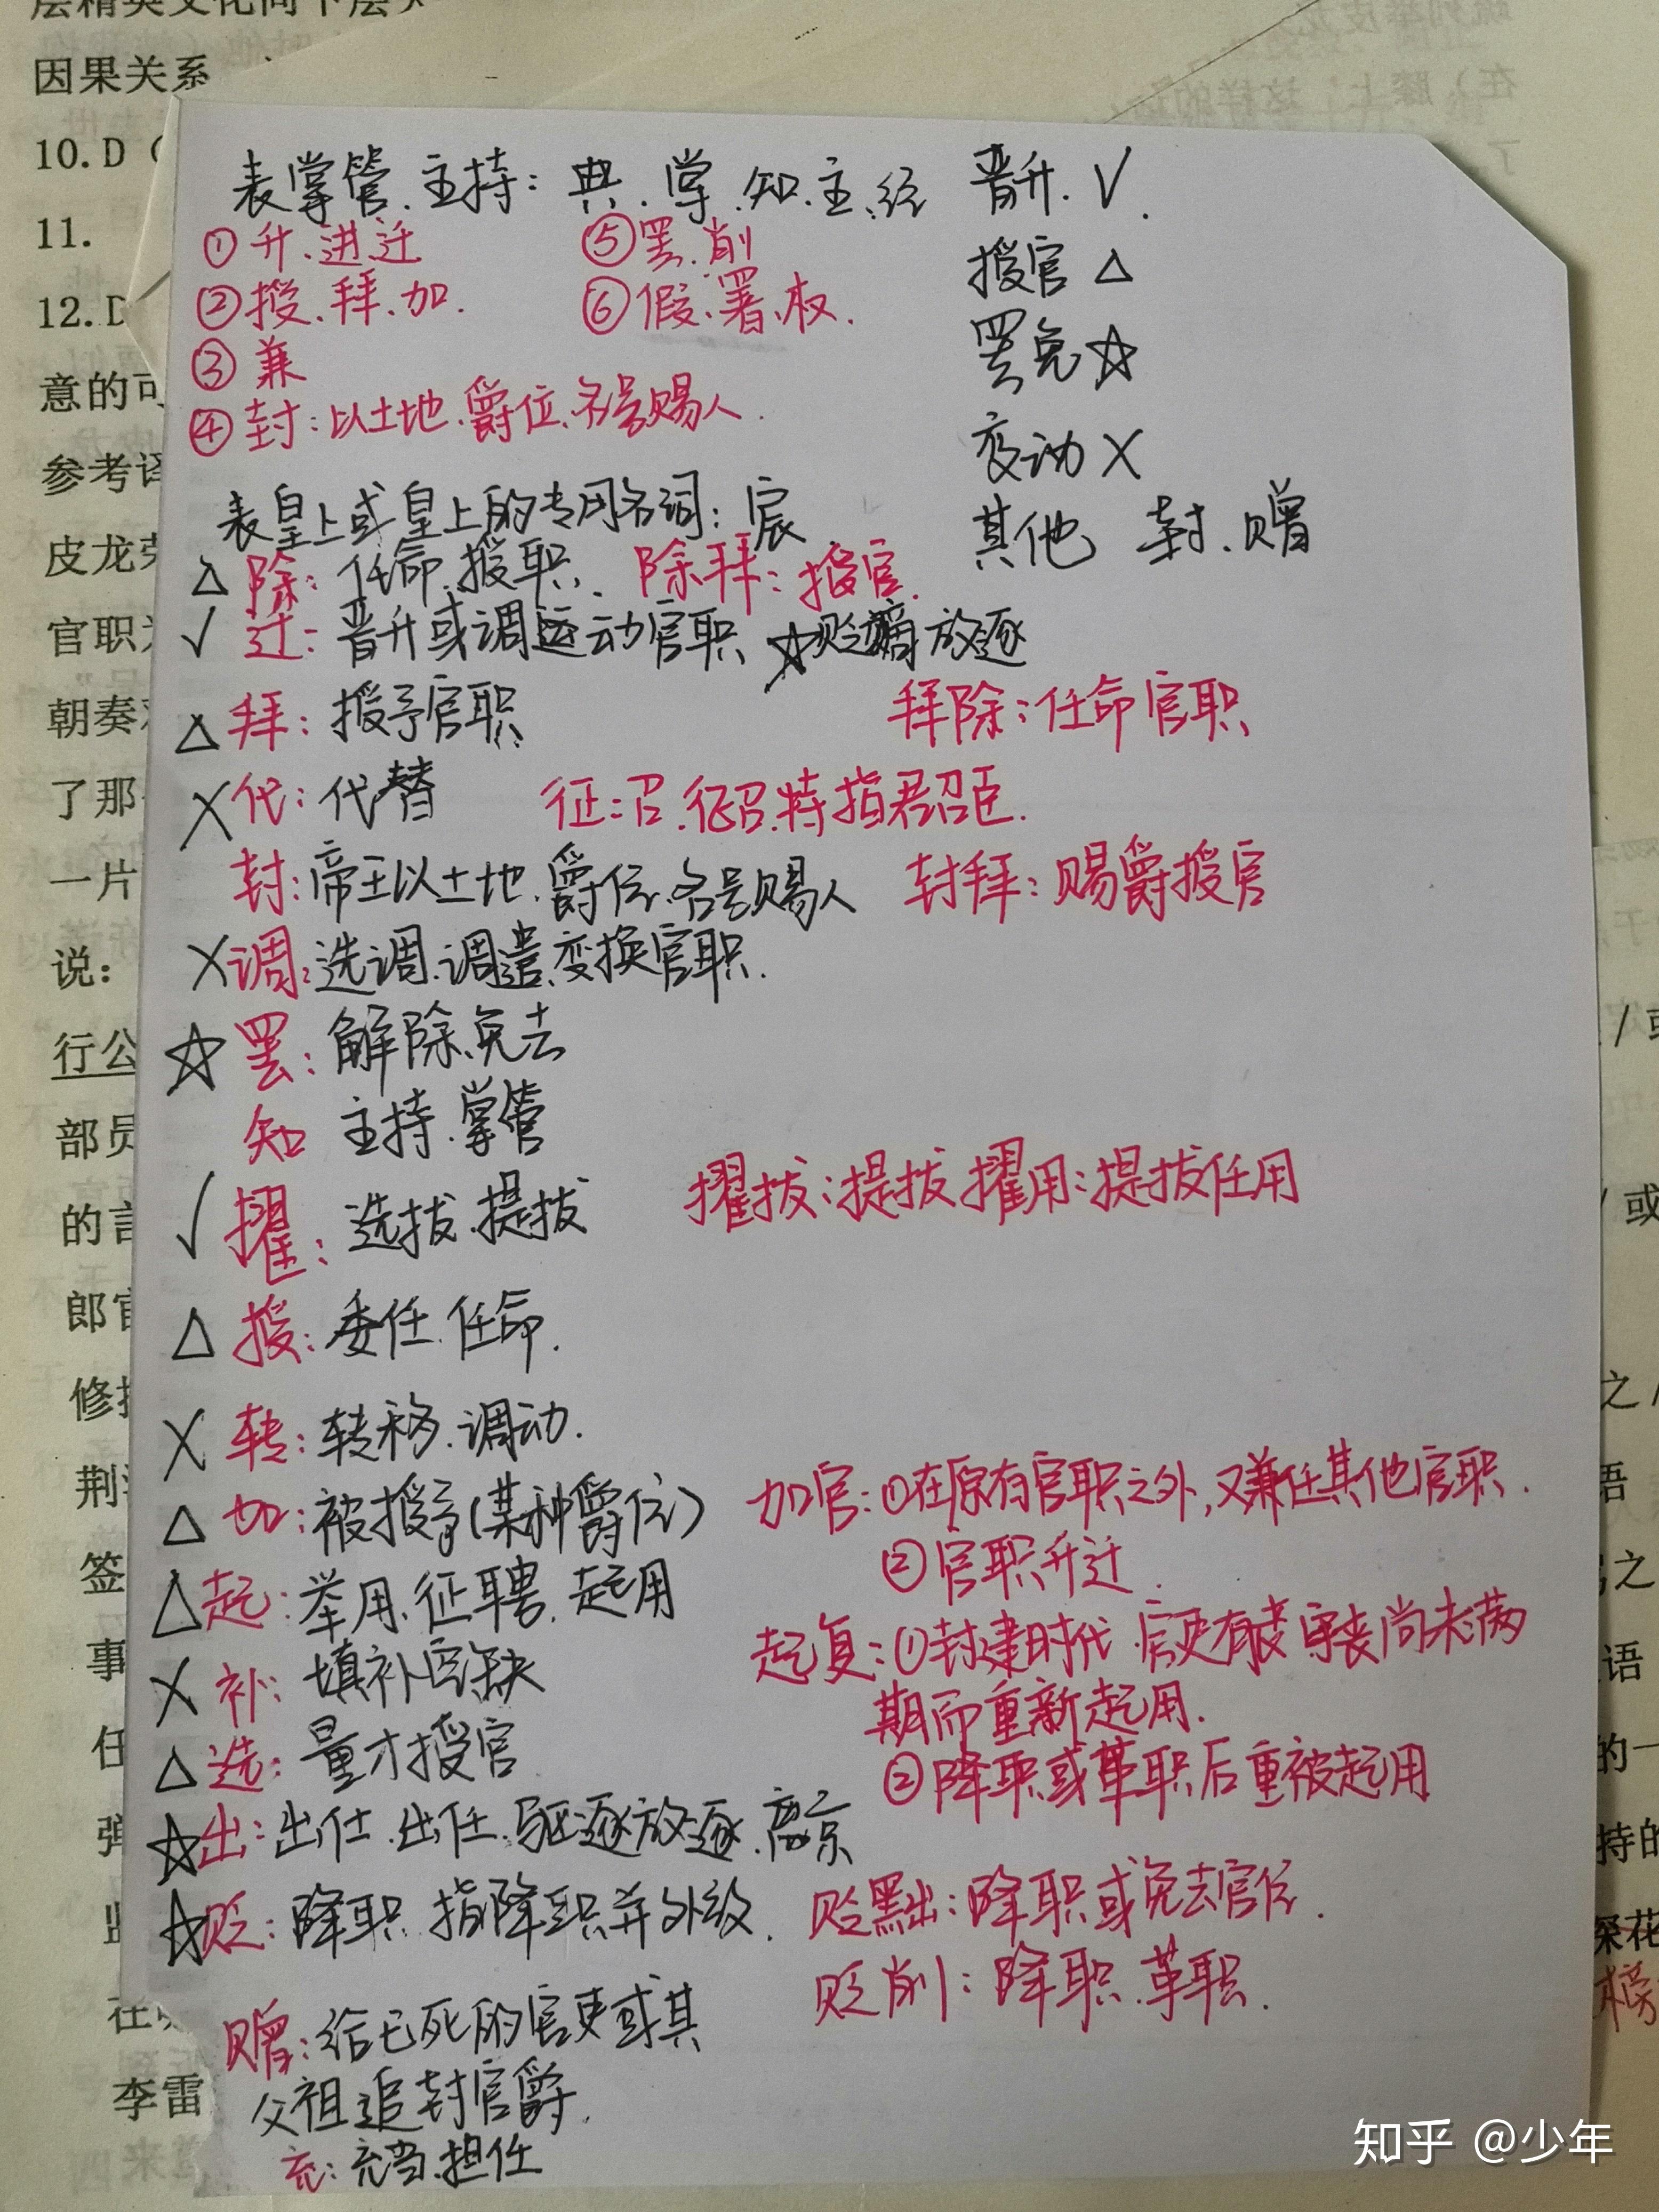 层精英文化向下层
因果关系
10.D
11.
12.D
意的可
参考译
皮龙荣
官职
朝奏
了那
一片
说：
行公
部员
的言
郎官
修
荆
签
事
任
李雷
表掌管.主持：典.掌.知.主.经 晋升.√.
①升.进.迁 ⑤罢.削
授官△
②授.拜.加. ⑥假.署.权.
罢免☆
③兼
④封：以土地.爵位.名号赐人.
变动×
表皇上或皇上的专用名词：宸
其他 封.赠
△除：任命.授职. 除拜：授官.
√迁：晋升或调动官职 ☆贬谪 放逐
△拜：授予官职 拜除：任命官职
×代：代替 征：召.征召.特指君召臣.
封：帝王以土地.爵位.名号赐人 封拜：赐爵授官
×调：选调.调遣.变换官职.
☆罢：解除.免去
知 主持.掌管
√擢：选拔.提拔 擢拔：提拔 擢用：提拔任用
△授：委任.任命.
×转：转移.调动.
△加：被授予(某种爵位) 加官：①在原有官职之外，又兼任其他官职.
②官职升迁.
△起：举用.征聘.起用
起复：①封建时代 官吏有丧 守丧尚未满
×补：填补官缺
期而重新起用.
△选：量才授官
②降职或革职后重被起用
☆出：出仕.出任.驱逐放逐.离京
☆贬：降职 指降职并外放. 贬黜：降职或免去官位.
贬削：降职.革职.
赠：给已死的官吏或其
父祖追封官爵.
充：充当.担任
知乎 @少年